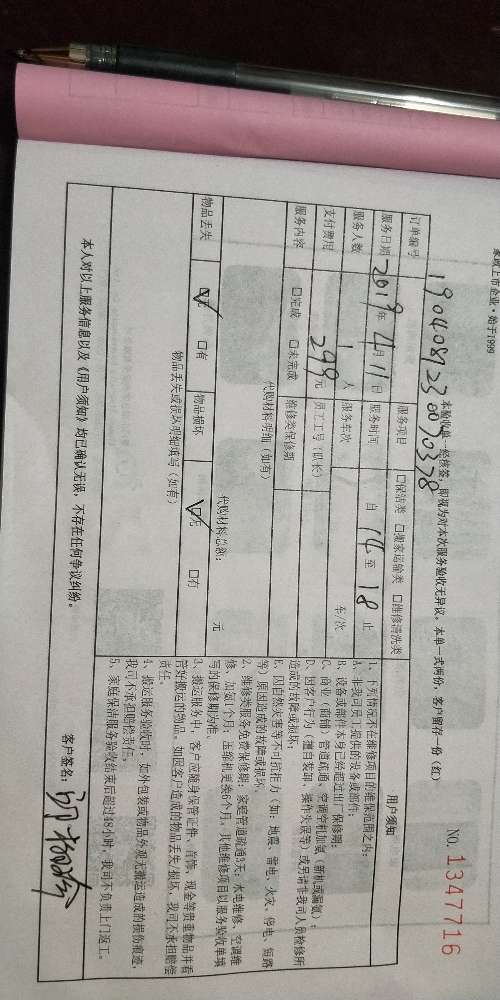 家政上市企业·始于1999
NO. 1347716
本验收单一经核签，即视为对本次服务验收无异议。本单一式两份，客户留存一份（红）
订单编号 1904081230070378 服务项目 □保洁类 □搬家运输类 □维修清洗类
服务日期 2019年4月11日 服务时间 自14至18止
服务人数 1人 服务车次 车/次
支付费用 299元 员工工号（队长）
服务内容 □完成 □未完成 维修类保修期
代购材料明细（如有）
代购材料总额： 元
物品丢失 ☑无 □有 物品损坏 ☑无 □有
物品丢失或损坏明细填写（如有）
用户须知
1、下列情况不在维修项目的维保范围之内：
A、非我司员工提供的设备或部件；
B、设备或部件本身已经超过出厂保修期；
C、商业（商铺）管道疏通、空调空机加氨（新机或漏氨）；
D、因客户行为（擅自装卸、操作失误等）或另请非我司人员检修所
造成的故障或损坏；
E、因自然灾害等不可抗拒力（如：地震、雷电、火灾、停电、短路
等）原因造成的故障或损坏。
2、维修类服务免费保修期：家庭管道疏通3天；水电维修、空调维
修、加氨1个月；压缩机更换6个月。其他维修项目以服务验收单填
写的保修期为准。
3、搬运服务中，客户应随身保管证件、首饰、现金等贵重物品并看
管好搬运的物品。如因客户造成的物品丢失/损坏，我司不承担赔偿
责任。
4、搬运服务验收时，如外包装或物品外观无搬运造成的损伤痕迹，
我司不承担赔偿责任。
5、家庭保洁服务验收结束后超过48小时，我司不负责上门返工。
本人对以上服务信息以及《用户须知》均已确认无误，不存在任何争议纠纷。
客户签名：